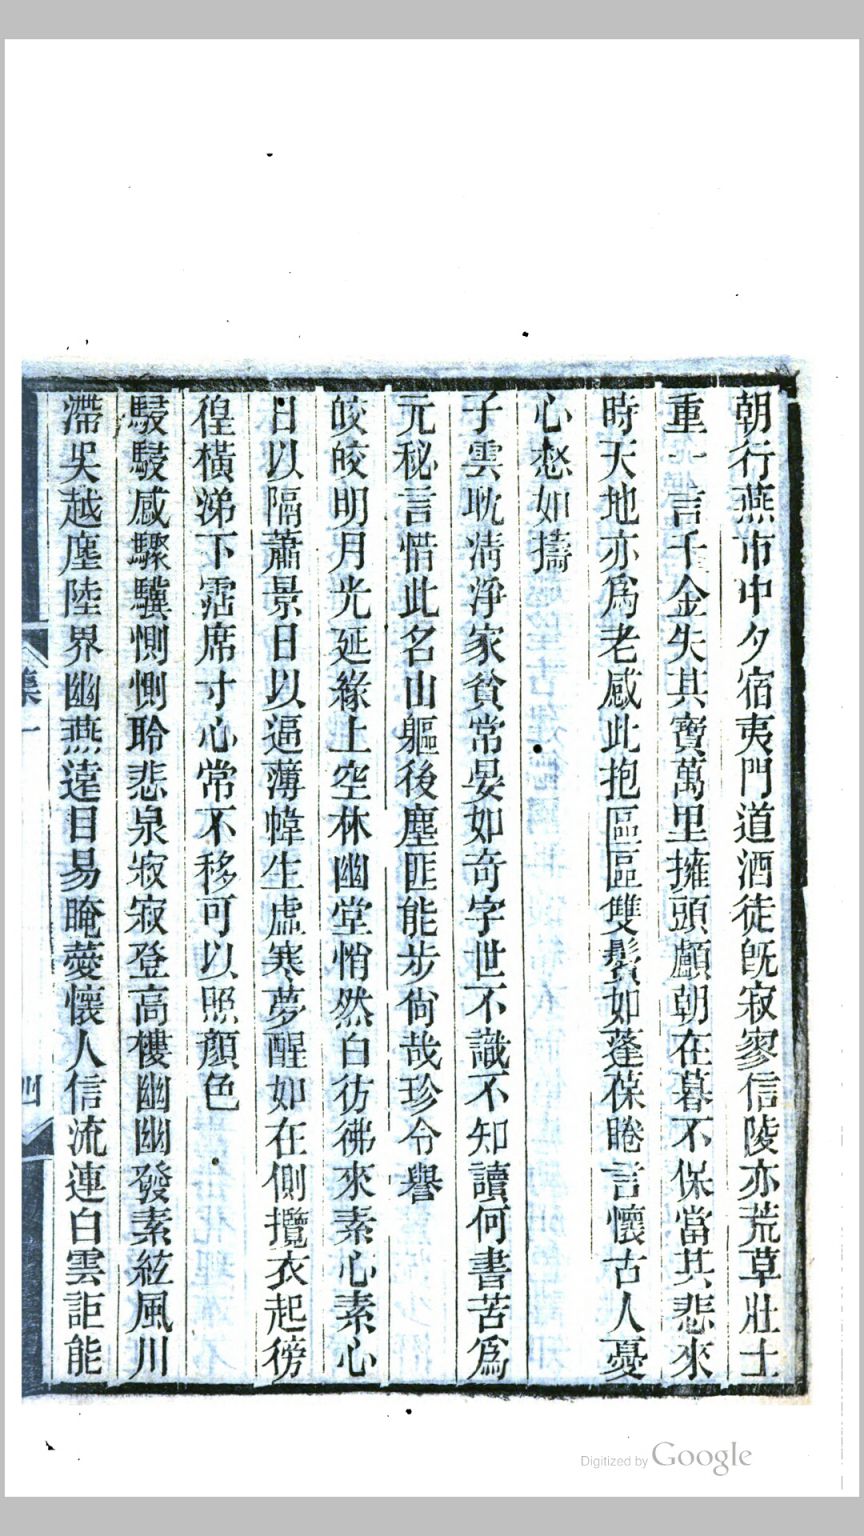 朝行燕市中夕宿夷門道酒徒旣寂寥信陵亦荒草壯士
重一言千金失其寶萬里擁頭顱朝在暮不保當其悲來
時天地亦爲老感此抱區區雙鬢如蓬葆睠言懷古人憂
心愁如擣
子雲耽淸淨家貧常晏如奇字世不識不知讀何書苦爲
元秘言惜此名山軀後塵匪能步尙哉珍令譽
皎皎明月光延緣上空林幽堂悄然白彷彿來素心素心
日以隔蕭景日以逼薄幃生虛寒夢醒如在側攬衣起徬
徨橫涕下霑席寸心常不移可以照顏色
駸駸感驟驥惻惻聆悲泉寂寂登高樓幽幽發素絃風川
滯吳越塵陸界幽燕遠目易晻薆懷人信流連白雲詎能
集一
四
Digitized by Google